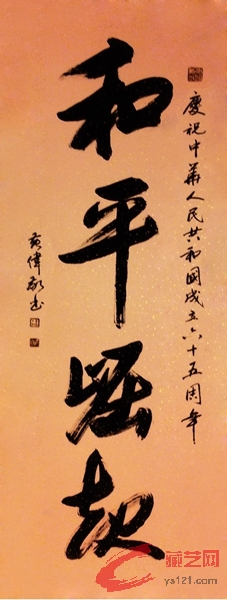 慶祝中華人民共和國成立六十五周年
和平崛起
藏艺网
ys121.com